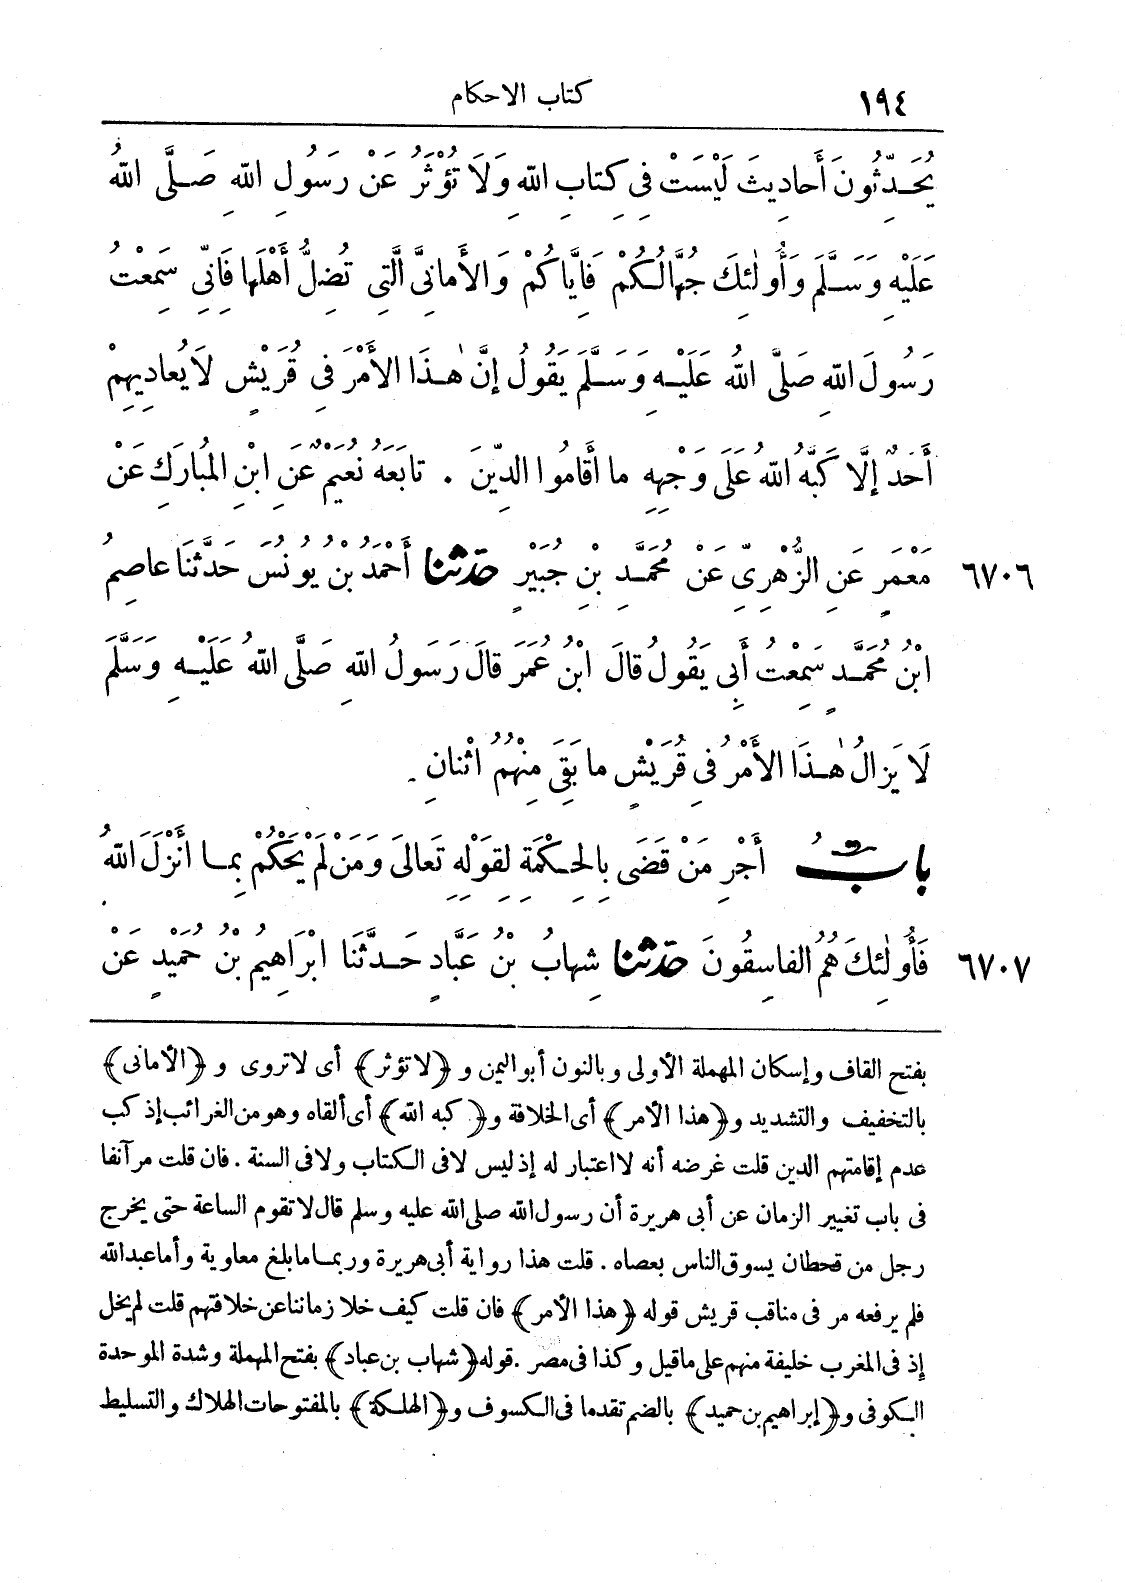 ١٩٤ كتاب الاحكام
يُحَدِّثُونَ أَحادِيثَ لَيْسَتْ فِي كِتابِ اللهِ وَلَا تُؤْثَرُ عَنْ رَسُولِ اللهِ صَلَّى اللهُ
عَلَيْهِ وَسَلَّمَ وَأُولٰئِكَ جُهَّالُكُمْ فَإِيَّاكُمْ وَالأَمانِيَّ الَّتِي تُضِلُّ أَهْلَها فَإِنِّي سَمِعْتُ
رَسُولَ اللهِ صَلَّى اللهُ عَلَيْهِ وَسَلَّمَ يَقُولُ إِنَّ هٰذَا الأَمْرَ فِي قُرَيْشٍ لَا يُعادِيهِمْ
أَحَدٌ إِلَّا كَبَّهُ اللهُ عَلَى وَجْهِهِ ما أَقامُوا الدِّينَ . تابَعَهُ نُعَيْمٌ عَنِ ابْنِ المُبارَكِ عَنْ
٦٧٠٦ مَعْمَرٍ عَنِ الزُّهْرِيِّ عَنْ مُحَمَّدِ بْنِ جُبَيْرٍ حدثنا أَحْمَدُ بْنُ يُونُسَ حَدَّثَنَا عاصِمُ
ابْنُ مُحَمَّدٍ سَمِعْتُ أَبِي يَقُولُ قالَ ابْنُ عُمَرَ قالَ رَسُولُ اللهِ صَلَّى اللهُ عَلَيْهِ وَسَلَّمَ
لَا يَزالُ هٰذَا الأَمْرُ فِي قُرَيْشٍ ما بَقِيَ مِنْهُمُ اثْنانِ .
بابُ أَجْرِ مَنْ قَضَى بِالحِكْمَةِ لِقَوْلِهِ تَعالَى وَمَنْ لَمْ يَحْكُمْ بِما أَنْزَلَ اللهُ
٦٧٠٧ فَأُولٰئِكَ هُمُ الفاسِقُونَ حدثنا شِهابُ بْنُ عَبَّادٍ حَدَّثَنَا ابْرَاهِيمُ بْنُ حُمَيْدٍ عَنْ
بفتح القاف وإسكان المهملة الأولى وبالنون أبو اليمن و ﴿لا تؤثر﴾ أى لا تروى و ﴿الأمانى﴾
بالتخفيف والتشديد و ﴿هذا الأمر﴾ أى الخلافة و ﴿كبه الله﴾ أى ألقاه وهو من الغرائب إذ كب
عدم إقامتهم الدين قلت غرضه أنه لا اعتبار له إذ ليس لا فى الكتاب ولا فى السنة . فان قلت مر آنفا
فى باب تغيير الزمان عن أبى هريرة أن رسول الله صلى الله عليه وسلم قال لا تقوم الساعة حتى يخرج
رجل من قحطان يسوق الناس بعصاه . قلت هذا رواية أبى هريرة وربما ما بلغ معاوية وأما عبد الله
فلم يرفعه مر فى مناقب قريش قوله ﴿هذا الأمر﴾ فان قلت كيف خلا زماننا عن خلافتهم قلت لم يخل
إذ فى المغرب خليفة منهم على ما قيل وكذا فى مصر . قوله ﴿شهاب بن عباد﴾ بفتح المهملة وشدة الموحدة
الكوفى و ﴿إبراهيم بن حميد﴾ بالضم تقدما فى الكسوف و ﴿الهلكة﴾ بالمفتوحات الهلاك والتسليط